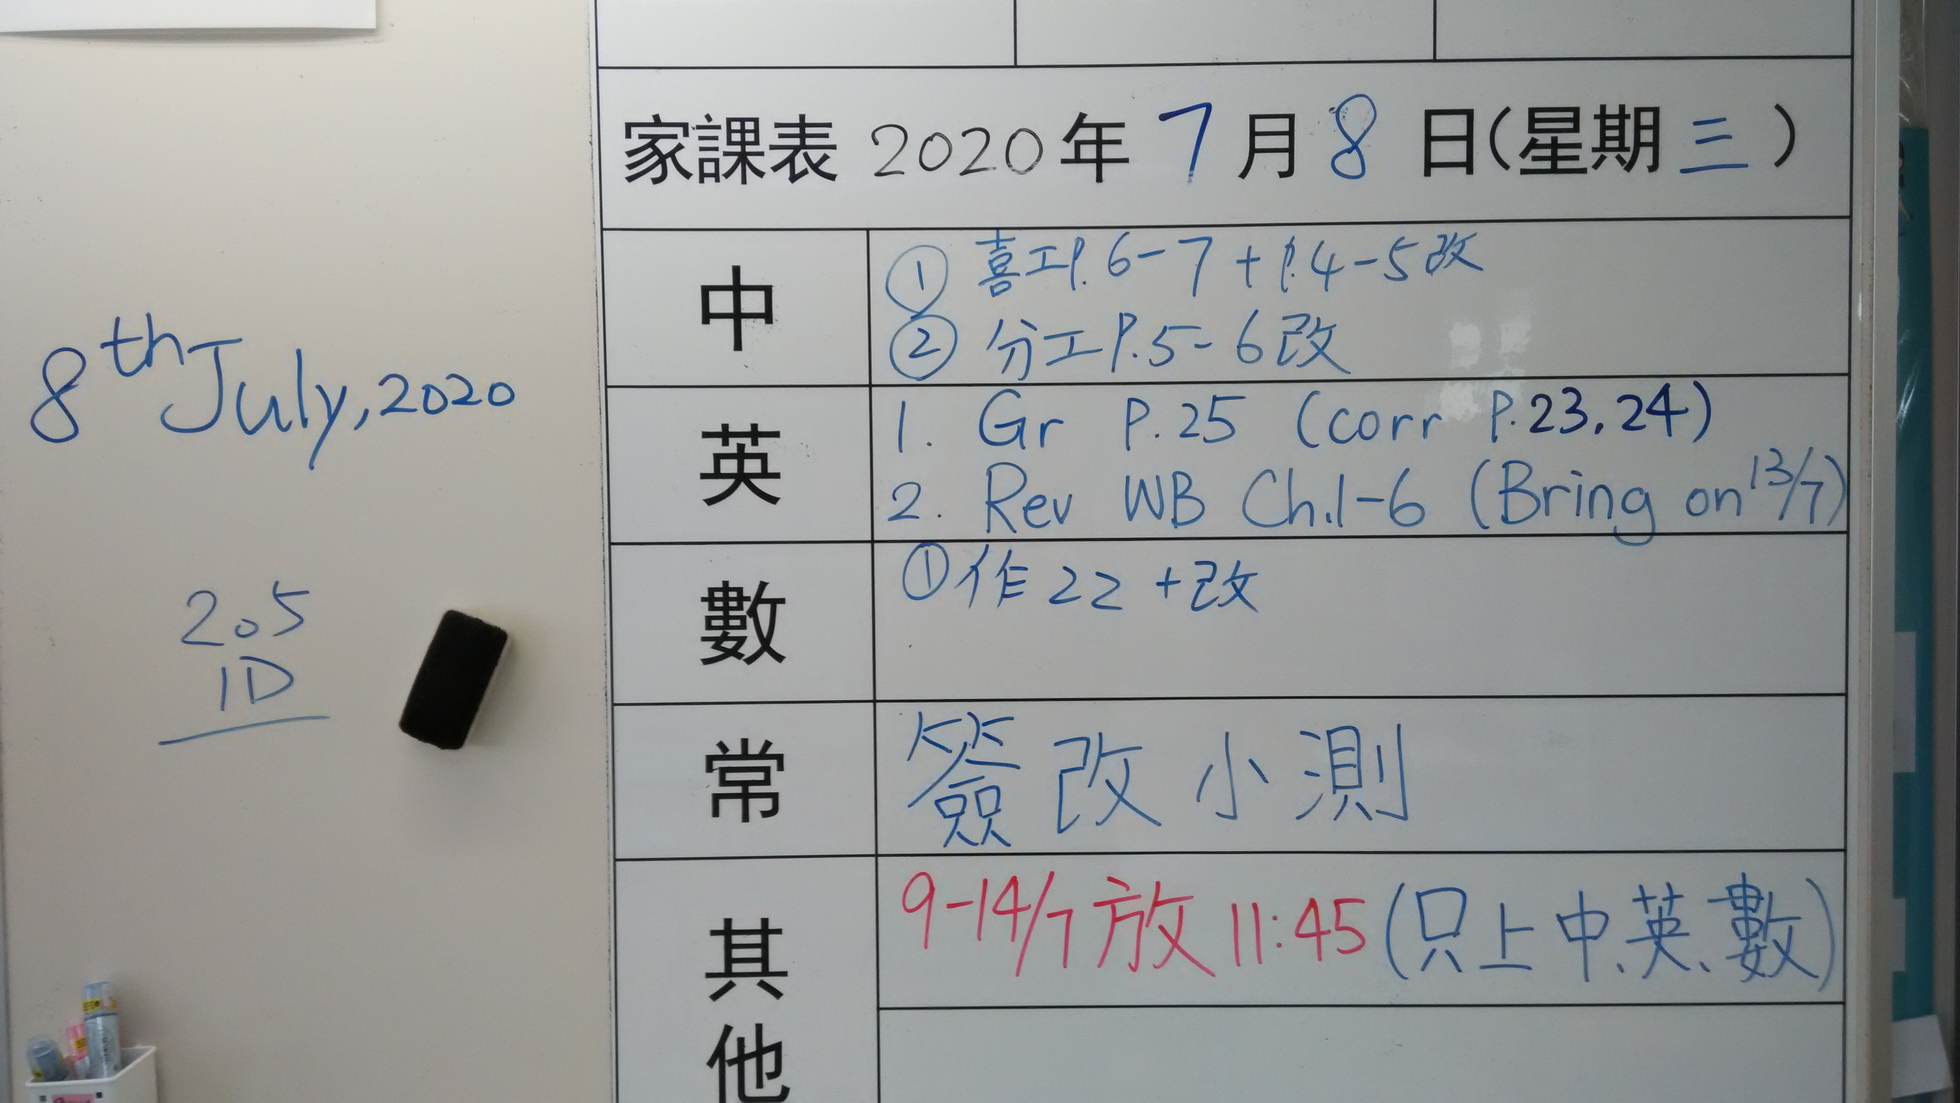 8th July, 2020
205
1D
家課表 2020年 7月 8日(星期三)
中
① 喜工P.6-7 + P.4-5改
② 分工P.5-6改
英
1. Gr P.25 (corr P.23, 24)
2. Rev WB Ch.1-6 (Bring on 13/7)
數
①作22 +改
常
簽改小測
其他
9-14/7放11:45(只上中、英、數)